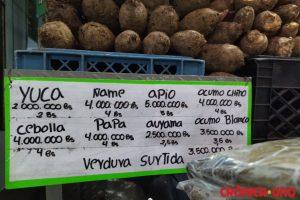 YUCA Ñame apio ocumo chino
2.000.000 Bs 4.000.000 Bs 5.000.000 Bs 4.000.000 Bs
2 Bs 4 Bs 5 Bs 4 Bs
Cebolla PaPa auyama ocumo Blanco
4.000.000 Bs 4.000.000 Bs 2.500.000 Bs 3.500.000 Bs
4 Bs 4 Bs 2,5 Bs 3,5 Bs
Verdura Surtida 3.500.000